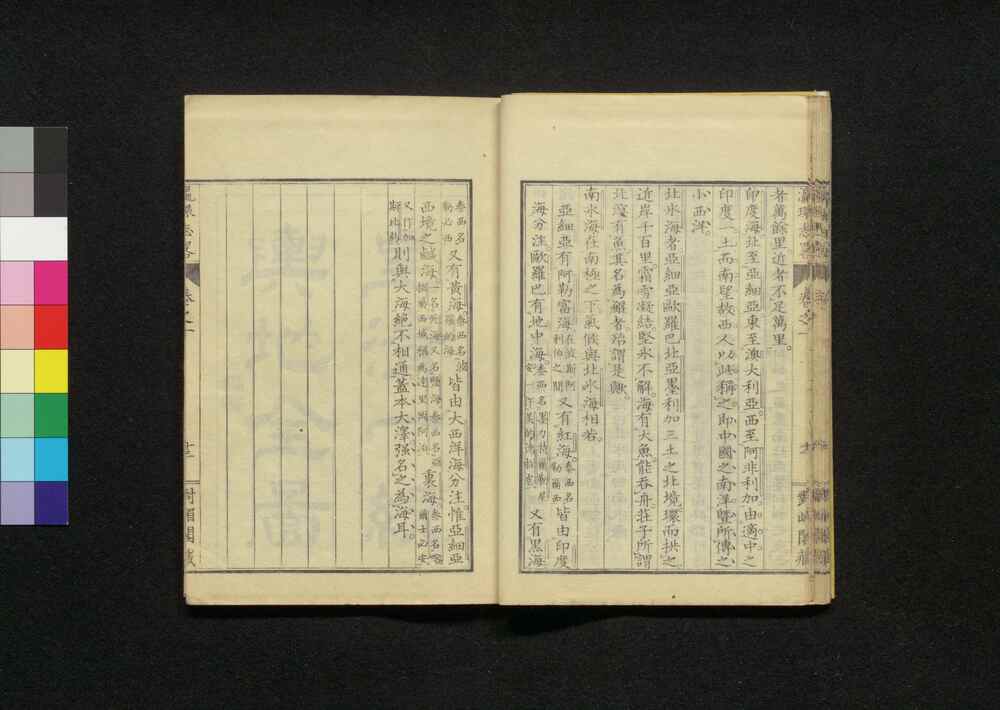 者萬餘里近者不足萬里。
印度海北至亞細亞東至澳大利亞。西至阿非利加。由適中之
印度一土而南望。故西人以此稱之。即中國之南洋。暨所傳之
小西洋。
北氷海者亞細亞歐羅巴北亞墨利加三土之北境。環而拱之
近岸千百里霜雪凝結堅氷不解。海有大魚能吞舟。莊子所謂
北溟有魚其名為鯤者。殆謂是歟。
南氷海在南極之下。氣候與北氷海相若。
亞細亞有阿勒富海在波斯阿利伯之間又有紅海。泰西名勒爾西皆由印度
海分注。歐羅巴有地中海。又有黑海
泰西名勒必西又有黃海皆由大西洋海分注。惟亞細亞
西境之鹹海裏海
則與大海絕不相通。蓋本大澤强名之為海耳。
瀛環志畧
卷之一
對嵋閣藏